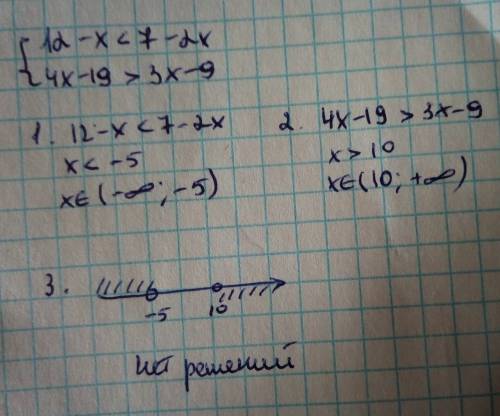 { 12 - x < 7 - 2x
4x - 19 > 3x - 9
1. 12 - x < 7 - 2x
x < -5
x ∈ (-∞; -5)
2. 4x - 19 > 3x - 9
x > 10
x ∈ (10; +∞)
3.
-5 10
нет решений